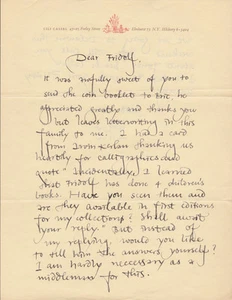 Dear Fridolf,
It was awfully sweet of you to
send the coin booklet to Zeo he
appreciated greatly and thanks you
but leaves letterwriting in this
family to me. I had a card
from Irvin Kerlan thanking us
heartily for calligraphics and
quote "Incidentally, I learned
that Fridolf has done 4 children's
books. Have you seen them and
are they available in first editions
for my collections? Shall await
your reply." But instead of
my replying, would you like
to tell him the answers yourself?
I am hardly necessary as a
middleman for this.